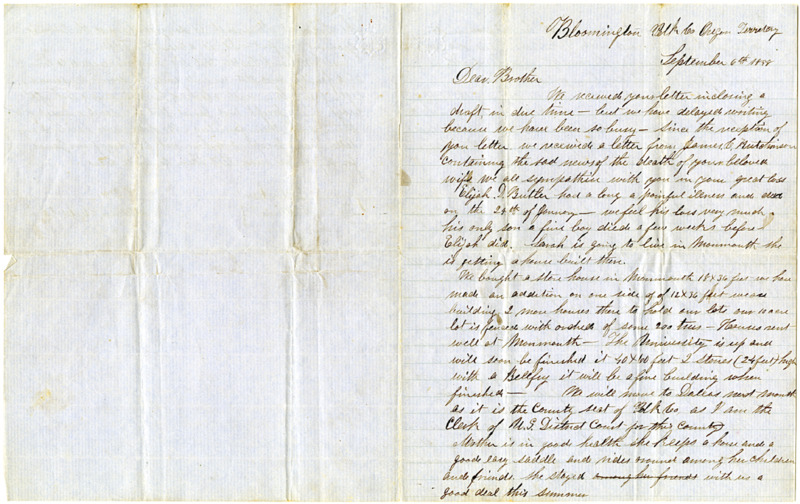 Bloomington Polk Co Oregon Terretory
September 6th 1858
Dear Brother
We received your letter inclosing a
draft in due time — but we have delayed writing
because we have been so busy — Since the reception of
your letter we received a letter from James C, Hutchinson
containing the sad news of the death of your beloved
wife we all sympathise with you in your great loss
Elijah D. Butler had a long a painful illness and died
on the 24th of January — we feel his loss very much.
his only son a fine boy died a few weeks before
Elijah did. Sarah is going to live in Monmouth she
is getting a house built there.
We bought a store house in Monmouth 18 x 36 feet we have
made an addition on one side of it 12 x 36 feet we are
building 2 more houses there to hold our lots our 10 acre
lot is fenced with orchard of some 200 trees — Houses rent
well at Monmouth — The University is up and
will soon be finished it 40 x 40 feet 2 stories (24 feet) high
with a Bellfry it will be a fine building when
finished — We will move to Dallas next month
as it is the County seat of Polk Co. as I am the
Clerk of U.S. District Court for this County
Mother is in good health she keeps a horse and a
good easy saddle and rides around among her children
and friends. she stayed among her friends with us a
good deal this summer